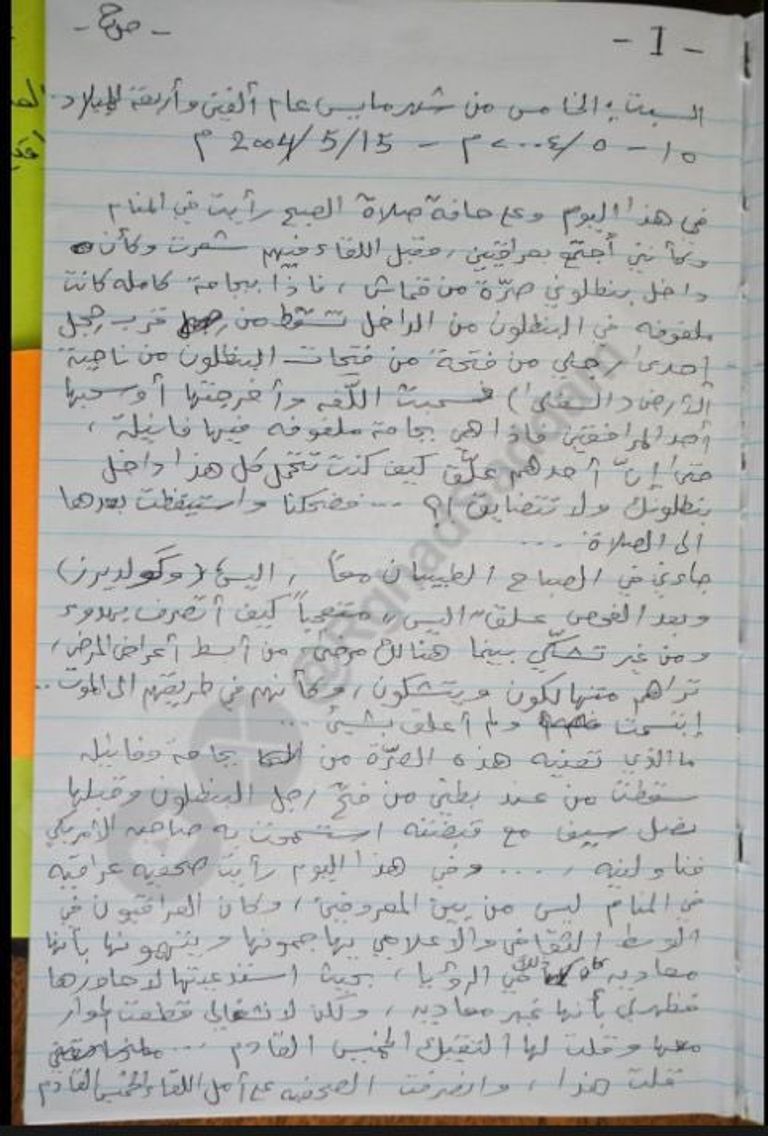 - 1 -
السبت: الخامس من شهر مايس عام ألفين وأربعة للميلاد
١٥ - ٥ / ٢٠٠٤م - 15/5/2004 م
في هذا اليوم وعلى حافة صلاة الصبح رأيت في المنام
وكأنني أجتمع بمرافقيني، وقبل اللقاء فيهم شعرت وكأن
داخل بنطلوني صرّة من قماش، فاذا ببجامة كاملة كانت
ملفوفه في البنطلون من الداخل تسقط من قرب رجل
إحدى رجلي من فتحة من فتحات البنطلون من ناحية
الأرض (السفلى) فسحبت اللفه وأخرجتها أو سحبها
أحد المرافقين فاذا هي بجامة ملفوفه فيها فانيلة،
حتى إنّ أحدهم علّق كيف كنت تتحمل كل هذا داخل
بنطلونك ولا تتضايق!؟ ... فضحكنا واستيقظت بعدها
الى الصلاة ...
جاءني في الصباح الطبيبان معاً، اليس (وكولديرز)
وبعد الفحص علق "اليس" متعجباً كيف أتصرف بهدوء
ومن غير تشكّي بينما هنالك مرضى، من أبسط أعراض المرض،
تراهم متهالكون ويتشكون، وكأنهم في طريقهم الى الموت..
إبتسمت ولم أعلق بشيئ ...
ما الذي تعنيه هذه الصرّة من بجامة وفانيله
سقطت من عند بطني من فتح رجل البنطلون وقبلها
نصل سيف مع قبضته استهوت به صاحبه الأمريكي
فناولنيه، .... وفي هذا اليوم رأيت صحفيه عراقيه
في المنام ليس من بين المعروفين، وكان العراقيون في
الوسط الثقافي والاعلامي يهاجمونها ويتهمونها بأنها
معاديه في الرؤيا، بحيث استدعيتها لاحاورها
فظهر لي بأنها غير معاديه، ولكن لانشغالي قطعت الحوار
معها وقلت لها ألتقيك الخميس القادم ...
قلت هذا، وانصرفت الصحفيه على أمل اللقاء الخميس القادم
@Rghadsaddam